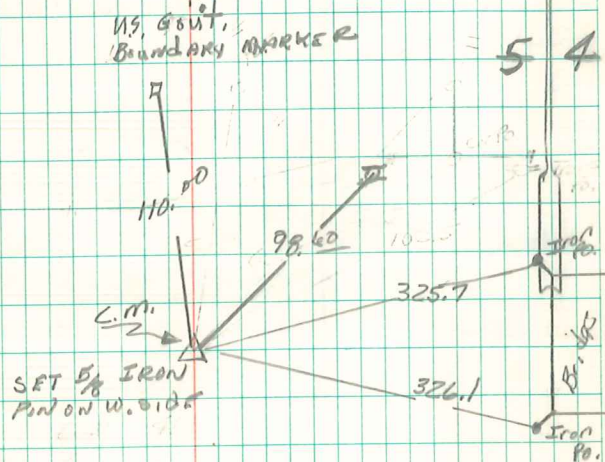 U.S. Gov't.
Boundary MARKER
5 4
110.00
98.60
Iron
Po.
325.7
C.M.
SET 5/8 IRON
PIN ON W. SIDE
326.1
Bridge
Iron
Po.